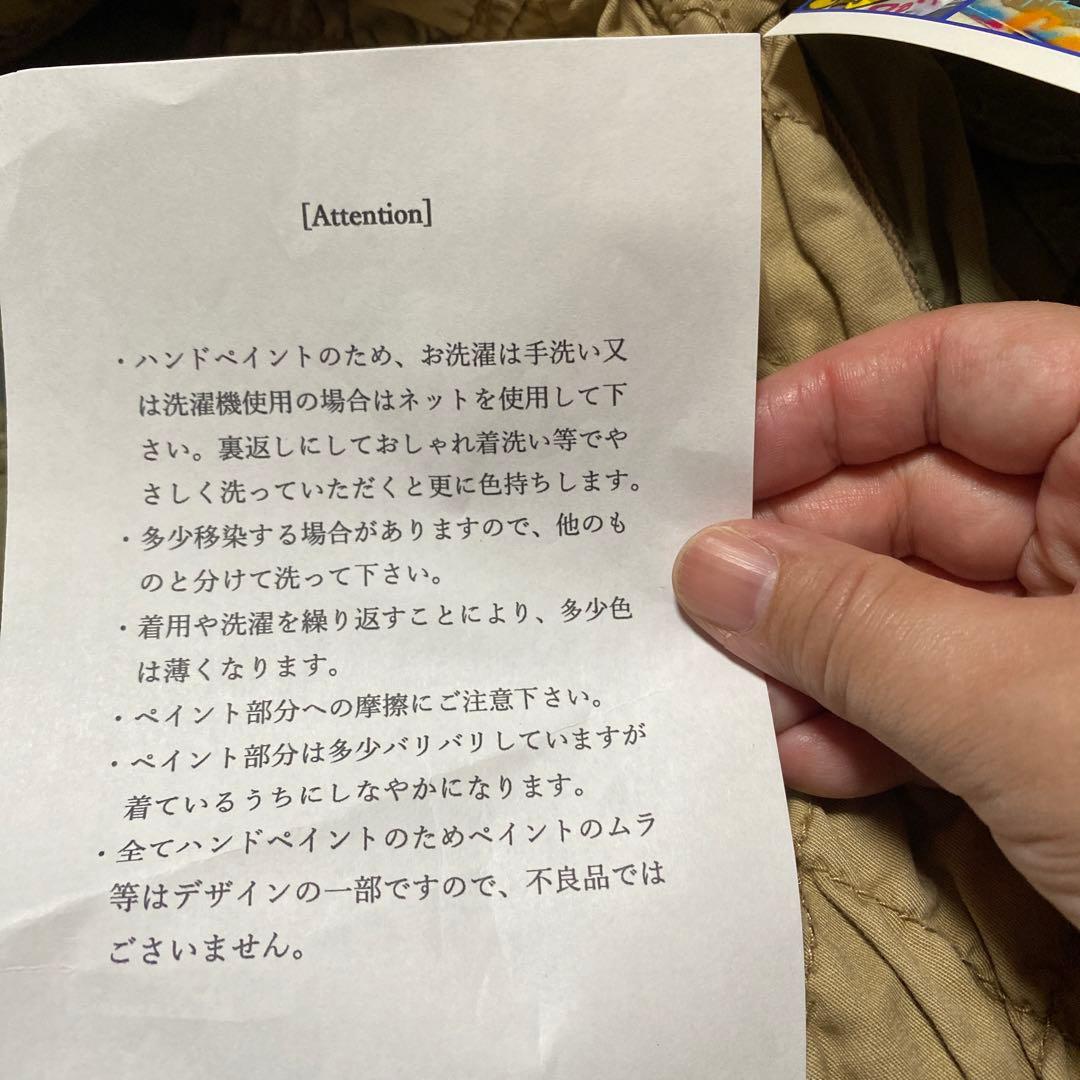 [Attention]
・ハンドペイントのため、お洗濯は手洗い又
は洗濯機使用の場合はネットを使用して下
さい。裏返しにしておしゃれ着洗い等でや
さしく洗っていただくと更に色持ちします。
・多少移染する場合がありますので、他のも
のと分けて洗って下さい。
・着用や洗濯を繰り返すことにより、多少色
は薄くなります。
・ペイント部分への摩擦にご注意下さい。
・ペイント部分は多少バリバリしていますが
着ているうちにしなやかになります。
・全てハンドペイントのためペイントのムラ
等はデザインの一部ですので、不良品では
ごさいません。